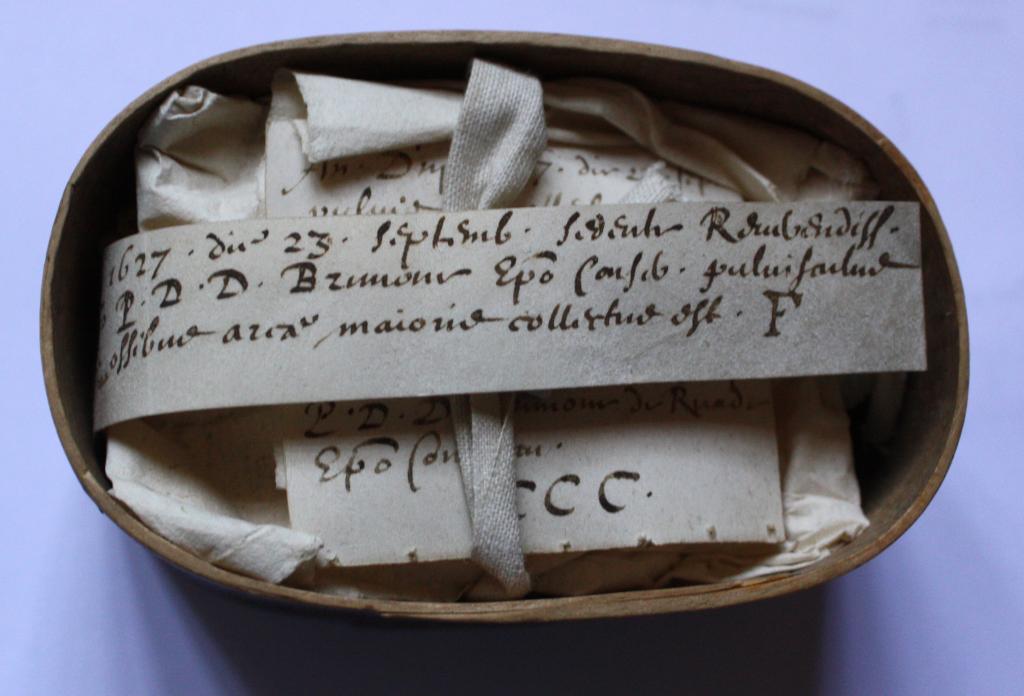 An. Dn 7. die 2
pulvis
1627. die 23. septemb. sedente Reverendiss.
P. D. D. Brunone Epō Conseb. pulvisculus
ossibus arcæ maioris collectus est. F
P. D. D unone de Ruade
Epō Con
CCC.